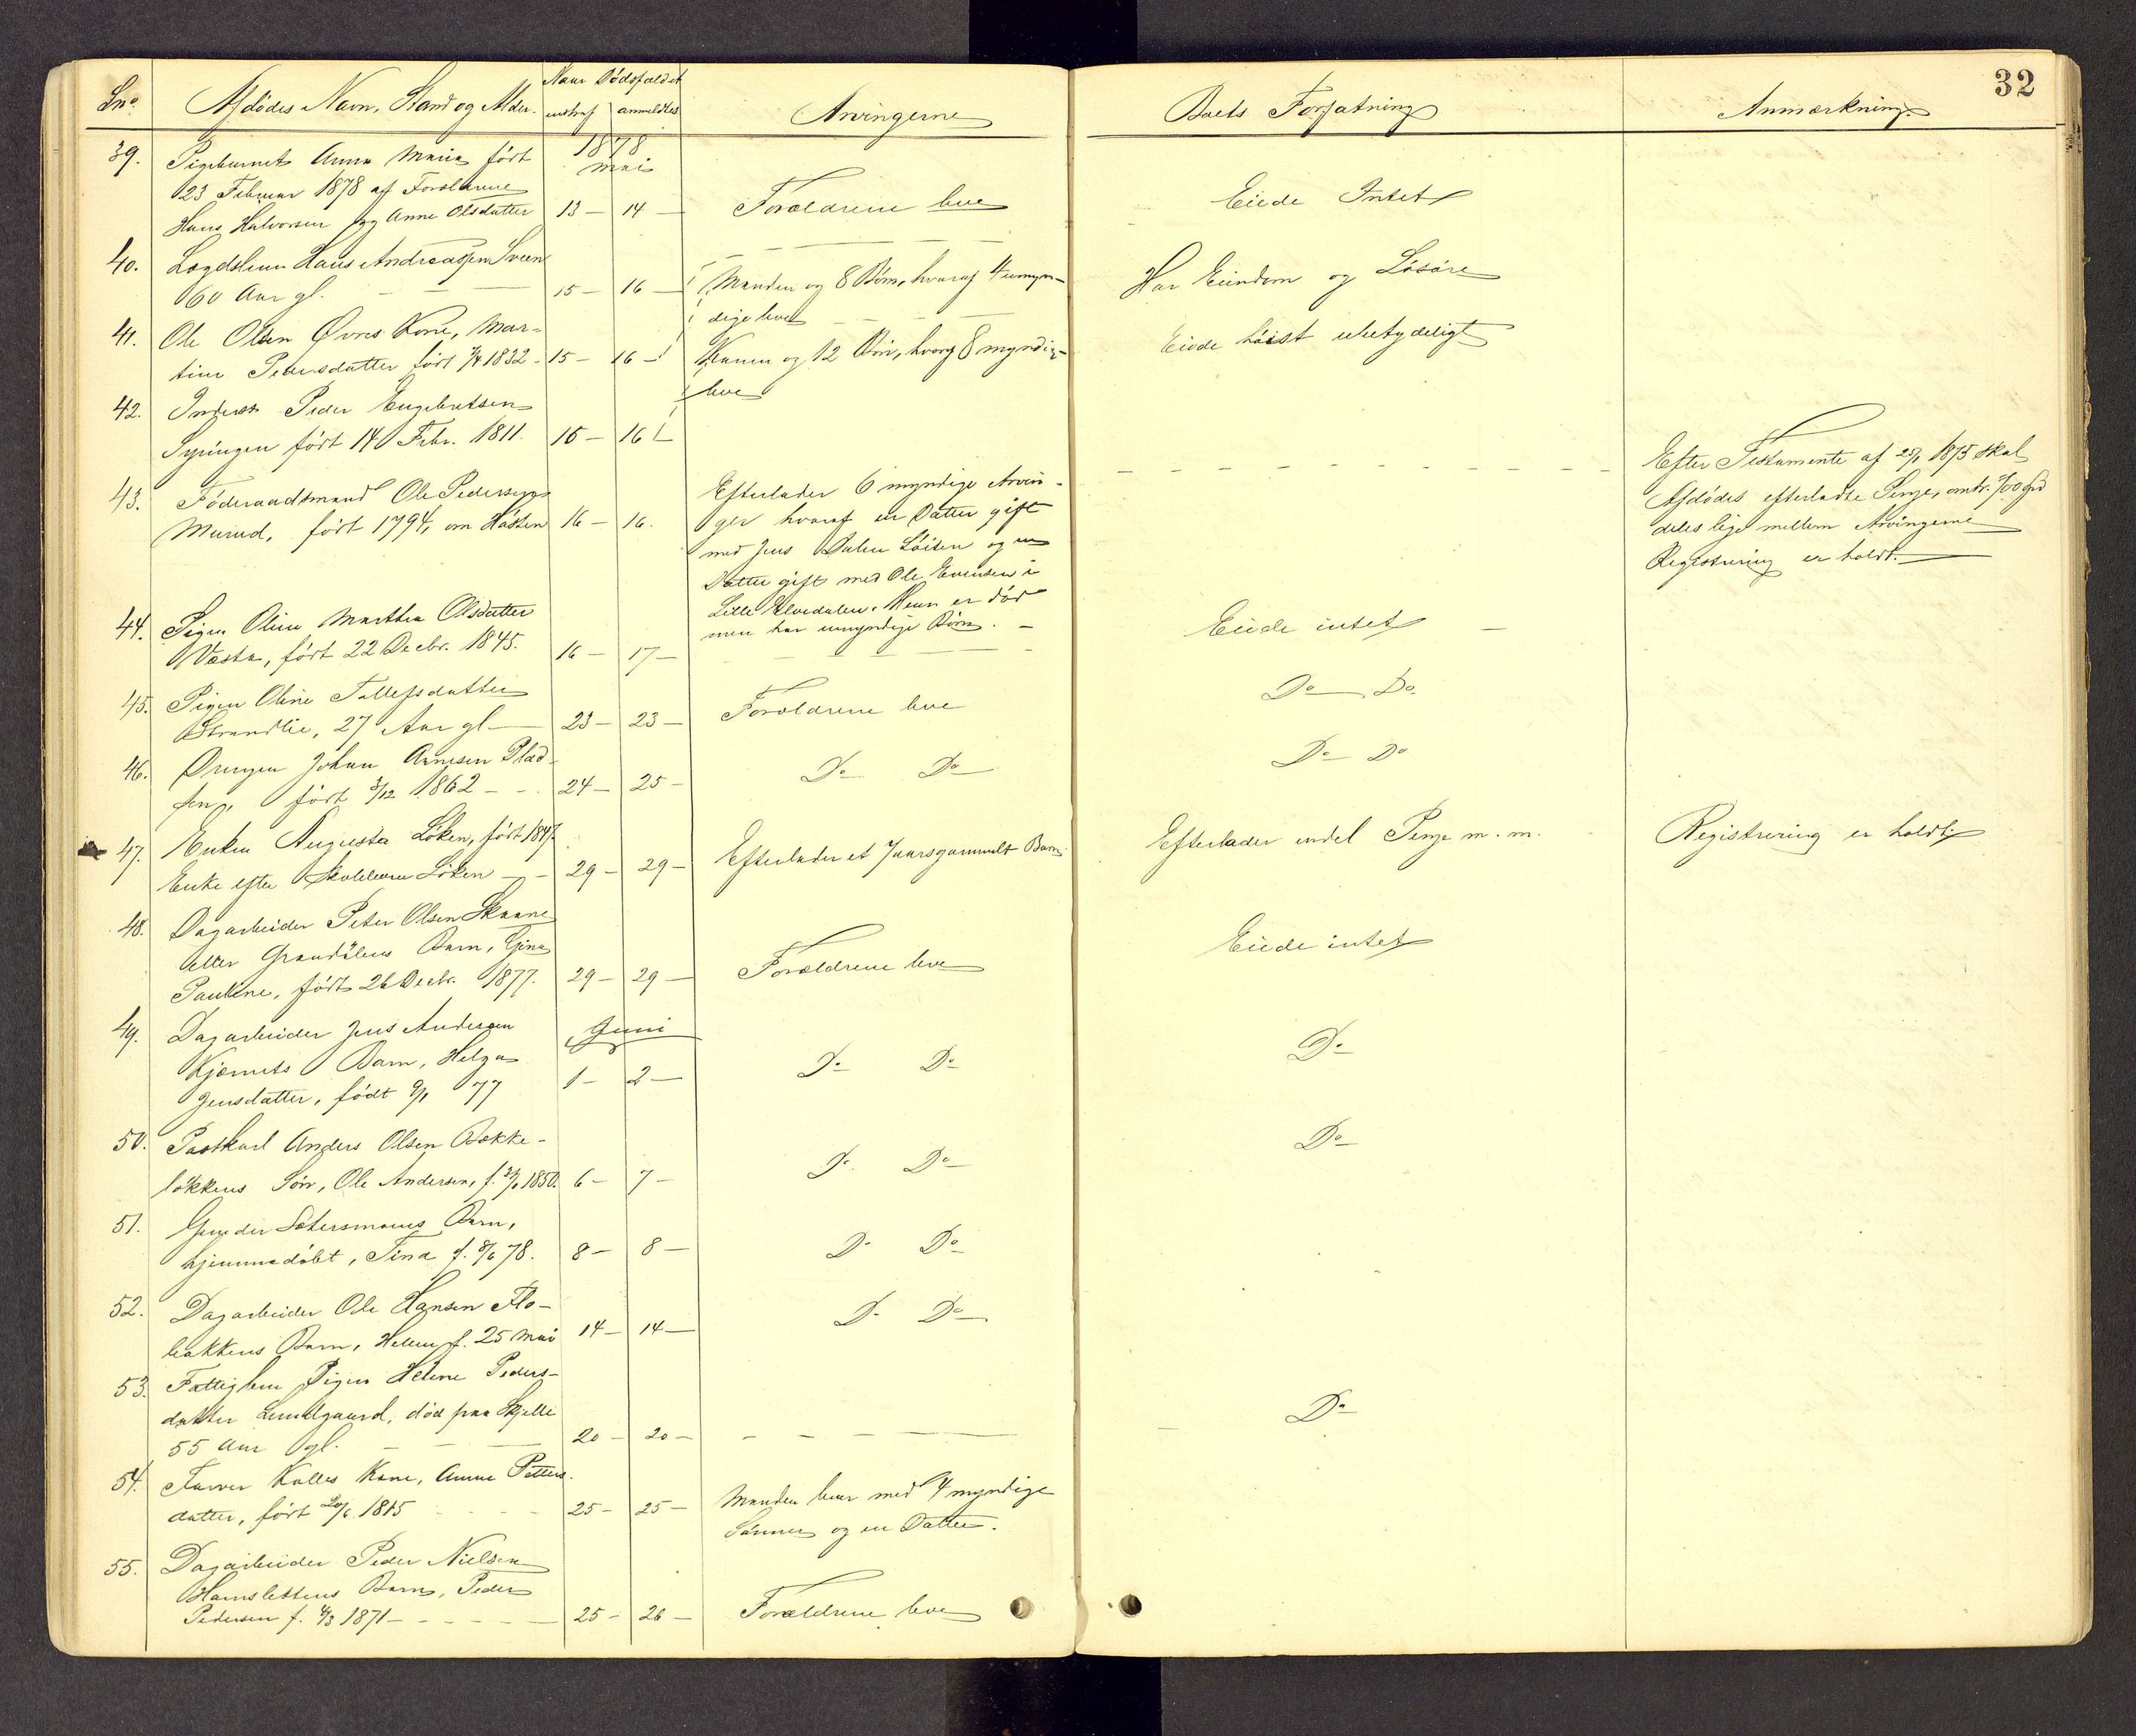 32
Lno. Afdødes Navn, Stand og Alder. Naar Dødsfaldet Arvingerne Boets Forfatning Anmærkning.
indtraf anmeldtes
1878
Mai
39. Pigebarnet Anna Maria født
23 Februar 1878 af Forældrene
Hans Halvorsen og Anne Olsdatter 13 – 14 – Forældrene leve Eiede Intet
40. Lægdslem Hans Andreassen Sveen
60 Aar gl. 15 – 16 – Manden og 8 Børn, hvoraf 4 umyn-
dige leve Har Eiendom og Løsøre
41. Ole Olsen Øvres Kone, Mar-
tine Pedersdatter født 1832 – 15 – 16 – Konen og 12 Børn, hvoraf 8 myndige
leve Eiede høist ubetydeligt
42. Inderst Peder Engebretsen
født 14 Febr. 1811. 15 – 16 –
43. Føderaadsmand Ole Pedersen
Murud, født 1794, om Høsten 16 – 16.
Efterlader 6 myndige Arvin-
ger hvoraf en Datter gift
med Jens Dalen Løiten og en
Datter gift med Ole Evensen i
Lille Elvedalen. Hun er død
men har umyndige Børn. –
Efter Testamente af 1875 skal
Afdødes efterladte Penge, omtr.
deles lige mellem Arvingerne
Registrering er holdt.
44. Pigen Oline Marthea Olsdatter
Væsta, født 22 Decbr. 1845. 16 – 17 – Eiede intet –
45. Pigen Oline Tollefsdatter
Strandlie, 27 Aar gl – 23 – 23 – Forældrene leve Do – Do
46. Drengen Johan Arnesen Plad-
sen, født 3/12 1862 – – 24 – 25 – Do Do – Do – Do
47. Enken Augusta Løken, født 1847.
Enke efter Skolelærer Løken – – 29 – 29 – Efterlader et 7 aarsgammelt Barn. Efterlader endel Penge m. m. Registrering er holdt.
48. Dagarbeider Peter Olsen Skaane
eller Grandølens Barn, Gina
Pauline, født 26 Decbr. 1877. 29 – 29 – Forældrene leve Eiede intet
Juni
49. Dagarbeider Jens Andersen
Kjernets Barn, Helga
Jensdatter, født 9/1 77 1 – 2 – Do Do – Do –
50. Postkarl Anders Olsen Bække-
løkkens Søn, Ole Andersen, f. 1850. 6 – 7 – Do Do – Do –
51. Gunder Sætersmoens Barn,
hjemmedøbt, Tina f. 8/6 78. 8 – 8 – Do Do –
52. Dagarbeider Ole Hansen Flo-
bakkens Barn, Helen f. 25 Mai 14 – 14 – Do Do –
53. Fattiglem Pigen Helene Peders-
datter Lundgaard, død paa Skjelle
55 Aar gl. 20 – 20 – Do –
54. Farver Kolles Kone, Anne Petters-
datter, født 20/6 1815 25 – 25 – Manden lever med 4 myndige
Sønner og en Datter.
55. Dagarbeider Peder Nielsen
Hamslettens Barn, Peder
Pedersen f. 4/3 1871 – 25 – 26 – Forældrene leve